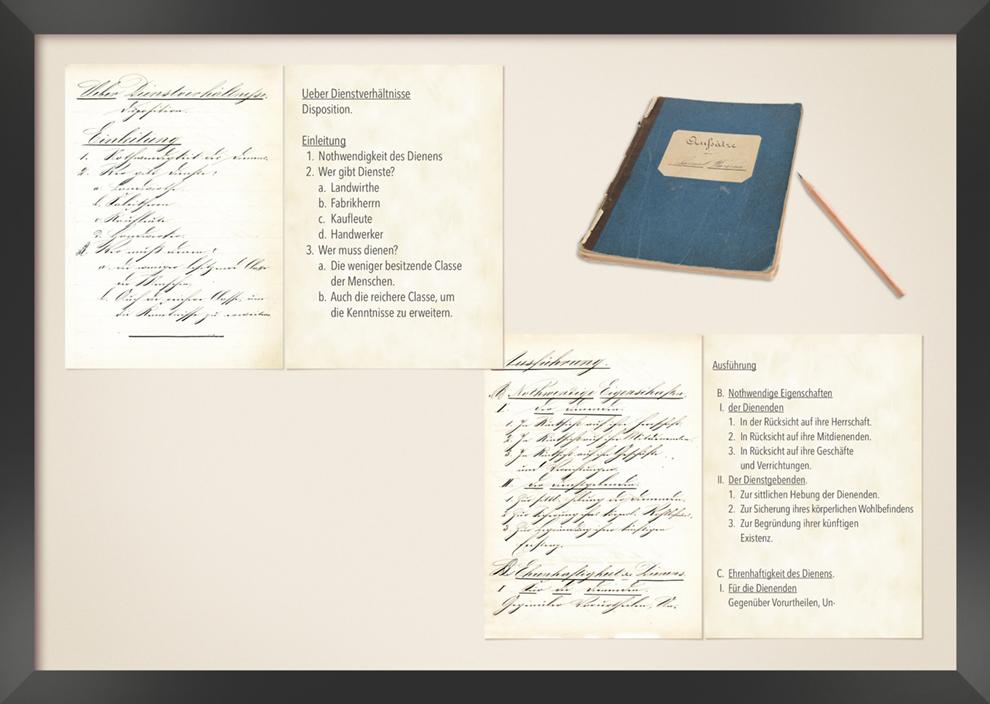 Ueber Dienstverhältnisse.
Disposition.
Einleitung
1. Nothwendigkeit des Dienens.
2. Wer gibt Dienste?
a. Landwirthe
b. Fabrikherrn
c. Kaufleute
d. Handwerker
3. Wer muss dienen?
a. Die weniger besitzende Classe
der Menschen.
b. Auch die reichere Classe, um
die Kenntnisse zu erweitern.
Ueber Dienstverhältnisse
Disposition.
Einleitung
1. Nothwendigkeit des Dienens
2. Wer gibt Dienste?
a. Landwirthe
b. Fabrikherrn
c. Kaufleute
d. Handwerker
3. Wer muss dienen?
a. Die weniger besitzende Classe
der Menschen.
b. Auch die reichere Classe, um
die Kenntnisse zu erweitern.
Aufsätze
Ausführung.
B. Nothwendige Eigenschaften
I. der Dienenden.
1. In Rücksicht auf ihre Herrschaft.
2. In Rücksicht auf ihre Mitdienenden.
3. In Rücksicht auf ihre Geschäfte
und Verrichtungen.
II. Der Dienstgebenden.
1. Zur sittl. Hebung der Dienenden.
2. Zur Sicherung ihres körperl. Wohlbefindens.
3. Zur Begründung ihrer künftigen
Existenz.
C. Ehrenhaftigkeit des Dienens.
I. Für die Dienenden.
Gegenüber Vorurtheilen, Un-
Ausführung
B. Nothwendige Eigenschaften
I. der Dienenden
1. In der Rücksicht auf ihre Herrschaft.
2. In Rücksicht auf ihre Mitdienenden.
3. In Rücksicht auf ihre Geschäfte
und Verrichtungen.
II. Der Dienstgebenden.
1. Zur sittlichen Hebung der Dienenden.
2. Zur Sicherung ihres körperlichen Wohlbefindens
3. Zur Begründung ihrer künftigen
Existenz.
C. Ehrenhaftigkeit des Dienens.
I. Für die Dienenden
Gegenüber Vorurtheilen, Un-